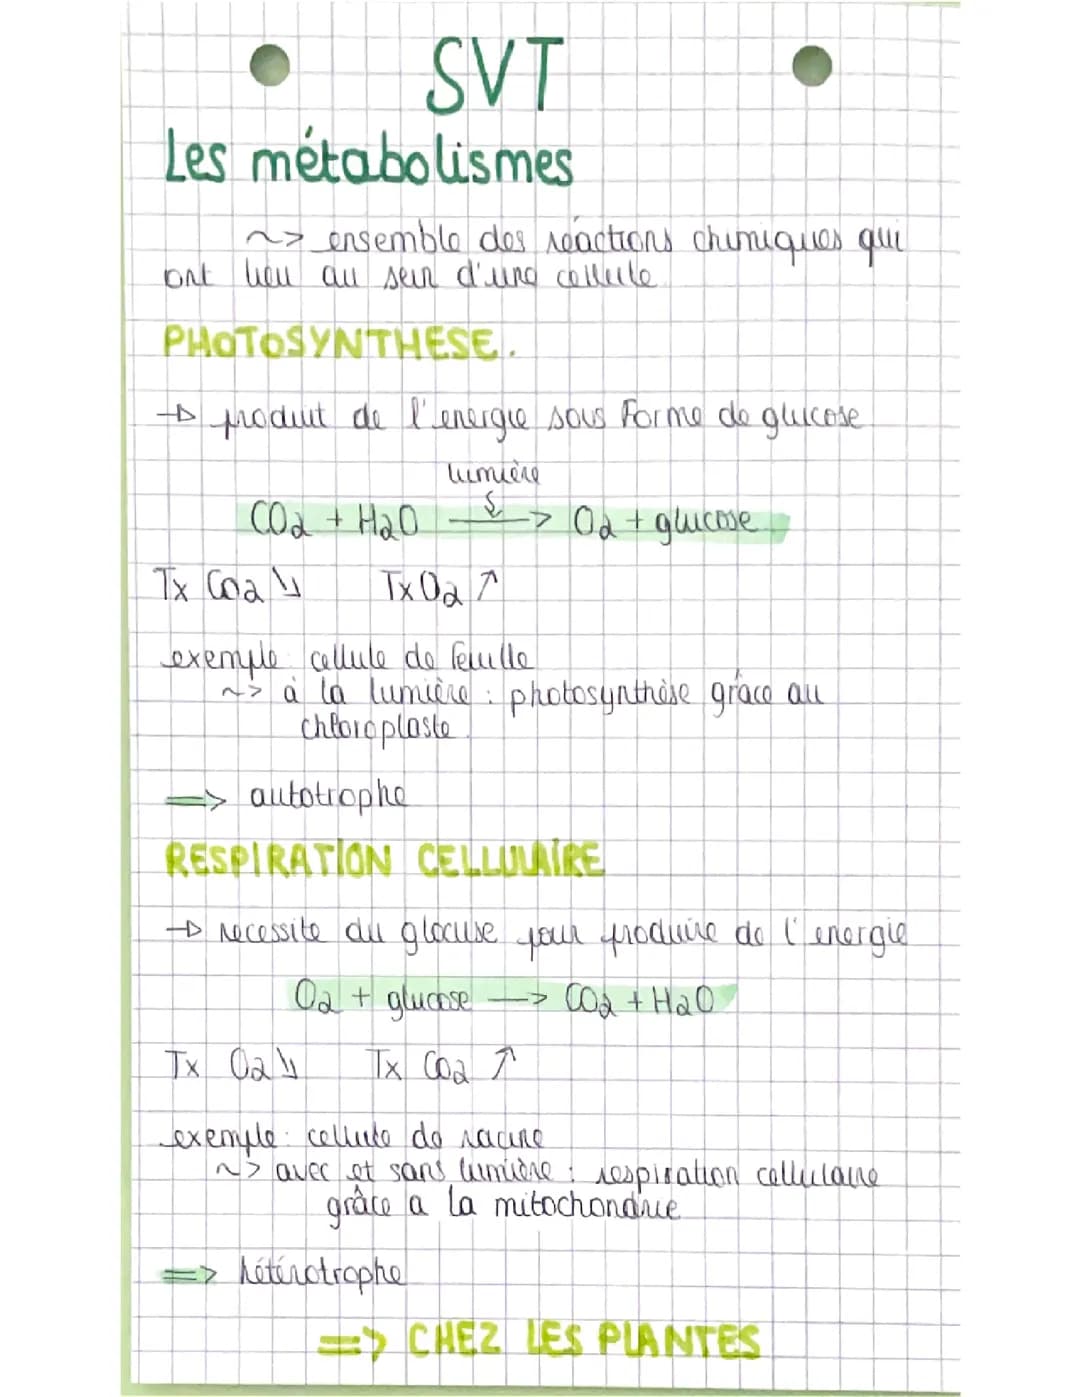 SVT
Les métabolismes
~> ensemble des réactions chimiques qui
ont lieu au sein d'une cellule
PHOTOSYNTHESE.
→ produit de l'energie sous Forme de glucose
lumière
CO2 + H2O → O2 + glucose
Tx CO2 ↘ Tx O2 ↗
exemple: cellule de feuille
~> à la lumière : photosynthèse grâce au
chloroplaste.
=> autotrophe
RESPIRATION CELLULAIRE
→ necessite du glocuse pour produire de l'energie
O2 + glucose → CO2 + H2O
Tx O2 ↘ Tx CO2 ↗
exemple: cellule de racine
~> avec et sans lumière : respiration cellulaire
grâce a la mitochondrie
=> hétérotrophe
=> CHEZ LES PLANTES